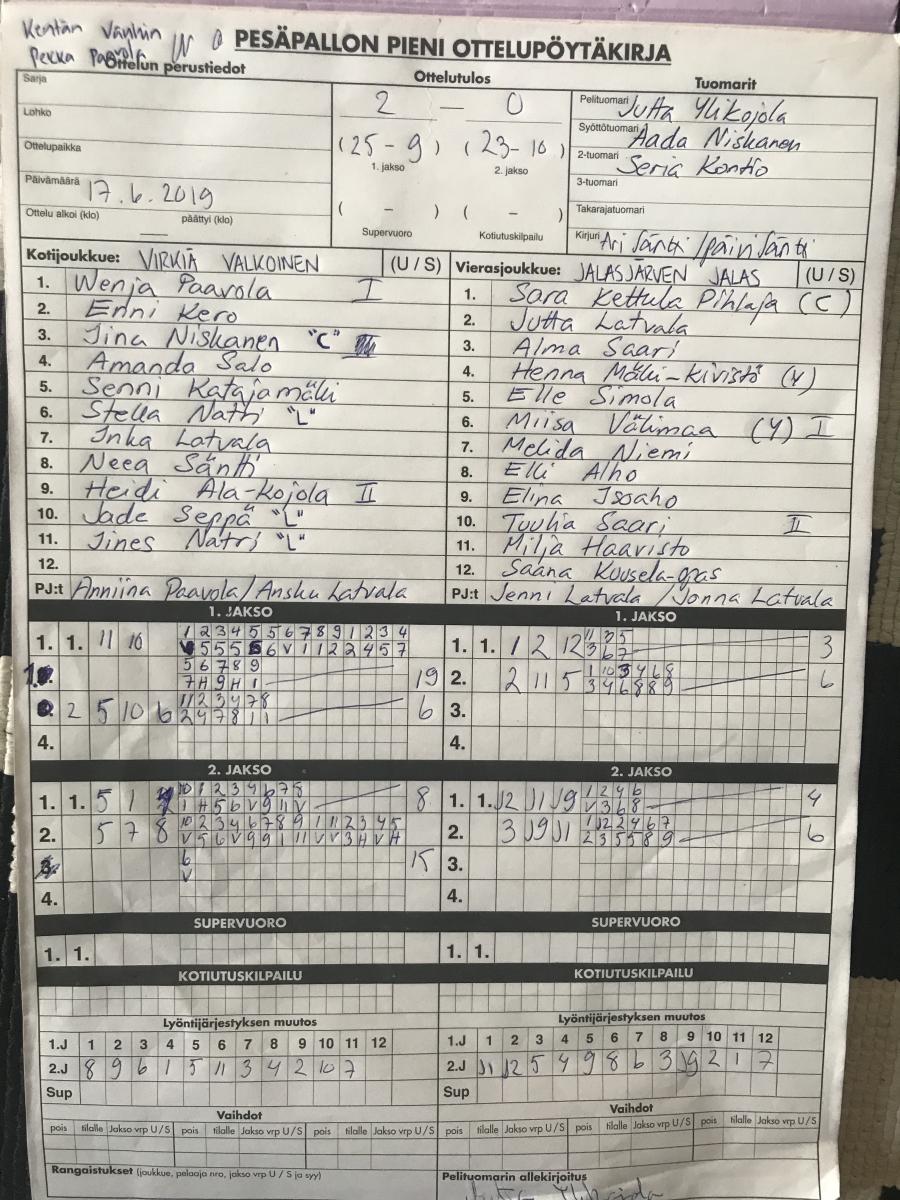 Kentän Vanhin
Pekka Paavola
PESÄPALLON PIENI OTTELUPÖYTÄKIRJA
Ottelun perustiedot
Ottelutulos
Tuomarit
Sarja
Lohko
Ottelupaikka
Päivämäärä 17.6.2019
Ottelu alkoi (klo) päättyi (klo)
2 — 0
(25 - 9) (23 - 10)
1. jakso 2. jakso
( - ) ( - )
Supervuoro Kotiutuskilpailu
Pelituomari Jutta Ylikojola
Syöttötuomari Aada Niskanen
2-tuomari Seria Kontio
3-tuomari
Takarajatuomari
Kirjuri Ari Säntti / Päivi Säntti
Kotijoukkue: VIRKIÄ VALKOINEN (U / S)
1. Wenja Paavola I
2. Enni Kero
3. Iina Niskanen "C"
4. Amanda Salo
5. Senni Katajamäki
6. Stella Natri "L"
7. Inka Latvala
8. Neea Säntti
9. Heidi Ala-Kojola II
10. Jade Seppä "L"
11. Iines Natri "L"
12.
PJ:t Anniina Paavola / Ansku Latvala
Vierasjoukkue: JALASJÄRVEN JALAS (U / S)
1. Sara Kettula Pihlaja (C)
2. Jutta Latvala
3. Alma Saari
4. Henna Mäki-Kivistö (Y)
5. Elle Simola
6. Miisa Välimaa (Y) I
7. Melida Niemi
8. Elli Alho
9. Elina Isoaho
10. Tuulia Saari II
11. Milja Haavisto
12. Saana Kuusela-opas
PJ:t Jenni Latvala / Jonna Latvala
1. JAKSO
1. 1. 11 10
1 2 3 4 5 5 6 7 8 9 1 2 3 4
5 5 5 6 V 1 1 2 2 4 5 7
5 6 7 8 9
7 H 9 H 1 19
2 5 10 6
11 2 3 4 7 8
2 4 7 8 1 1 6
4.
1. JAKSO
1. 1. 1 2 12
3 6 7 3
2. 2 11 5
1 10 3 4 6 8
3 4 6 8 8 9 6
3.
4.
2. JAKSO
1. 1. 5 1
10 1 2 3 4 6 7 8
1 H 5 6 V 9 11 V 8
2. 5 7 8
10 2 3 4 6 7 8 9 1 11 2 3 4 5
V 5 6 V 9 9 1 11 V V 3 H V H
3.
6
V 15
4.
2. JAKSO
1. 1. J2 J1 J9
1 2 4 6
V 3 6 8 4
2. 3 J9 J1
1 J2 2 4 6 7
2 3 5 5 8 9 6
3.
4.
SUPERVUORO
1. 1.
SUPERVUORO
1. 1.
KOTIUTUSKILPAILU
KOTIUTUSKILPAILU
Lyöntijärjestyksen muutos
1.J 1 2 3 4 5 6 7 8 9 10 11 12
2.J 8 9 6 1 5 11 3 4 2 10 7
Sup
Lyöntijärjestyksen muutos
1.J 1 2 3 4 5 6 7 8 9 10 11 12
2.J J1 J2 5 4 9 8 6 3 J9 2 1 7
Sup
Vaihdot
pois tilalle Jakso vrp U / S pois tilalle Jakso vrp U / S pois tilalle Jakso vrp U / S
Vaihdot
pois tilalle Jakso vrp U / S pois tilalle Jakso vrp U / S pois tilalle Jakso vrp U / S
Rangaistukset (joukkue, pelaaja nro, jakso vrp U / S ja syy)
Pelituomarin allekirjoitus